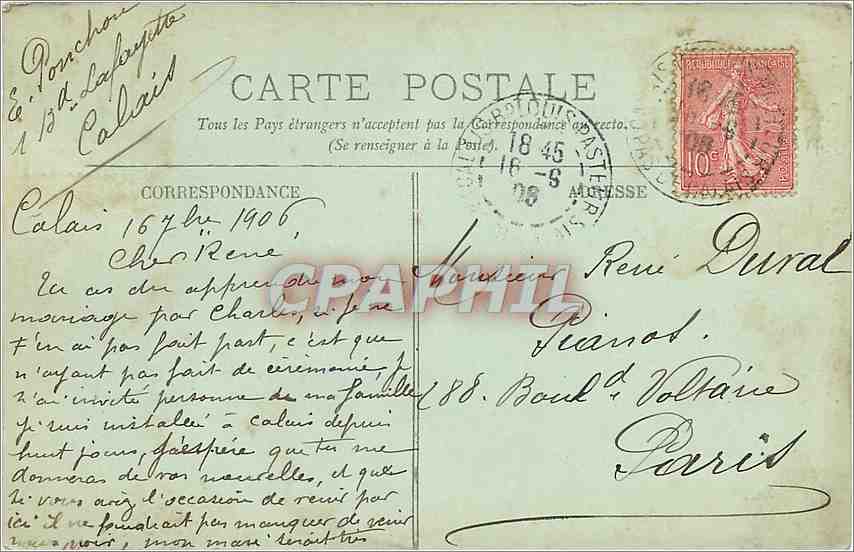 E. Ponchon
1 Bd Lafayette
Calais
CARTE POSTALE
Tous les Pays étrangers n'acceptent pas la Correspondance au recto.
(Se renseigner à la Poste).
RÉPUBLIQUE FRANÇAISE
10c
18 45
16 - 9
06
CORRESPONDANCE
ADRESSE
Calais 16 7bre 1906
Cher René,
Tu as du apprendre mon
mariage par Charles, si je ne
t'en ai pas fait part, c'est que
n'ayant pas fait de cérémonie, je
n'ai invité personne de ma famille
je suis installée à Calais depuis
huit jours, j'espère que tu me
donneras de vos nouvelles, et que
si vous aviez l'occasion de venir par
ici il ne faudrait pas manquer de venir
nous voir, mon mari serait très
Monsieur René Duval
Pianos.
188. Boul.d Voltaire
Paris
CPAPHIL